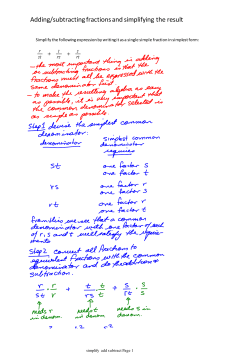 Adding/subtracting fractions and simplifying the result
Simplify the following expression by writing it as a single simple fraction in simplest form:
- the most important thing in adding
or subtracting fractions is that the
fractions must all be expressed with the
same denominator first
- to make the resulting algebra as easy
as possible, it is very important that
the common denominator selected is
as simple as possible.
Step 1 devise the simplest common
denominator:
denominator simplest common
denominator
requires
st one factor s
one factor t
rs one factor r
one factor s
rt one factor r
one factor t
From this we see that a common
denominator with one factor of each
of r, s and t will satisfy the
Step 2 convert all fractions to
equivalent fractions with the common
denominator and do the addition &
subtraction.
r/st · r/r + t/rs · t/t + s/rt · s/s
needs r needs t needs s in
in denom. in denom denom.
simplify add subtract Page 1